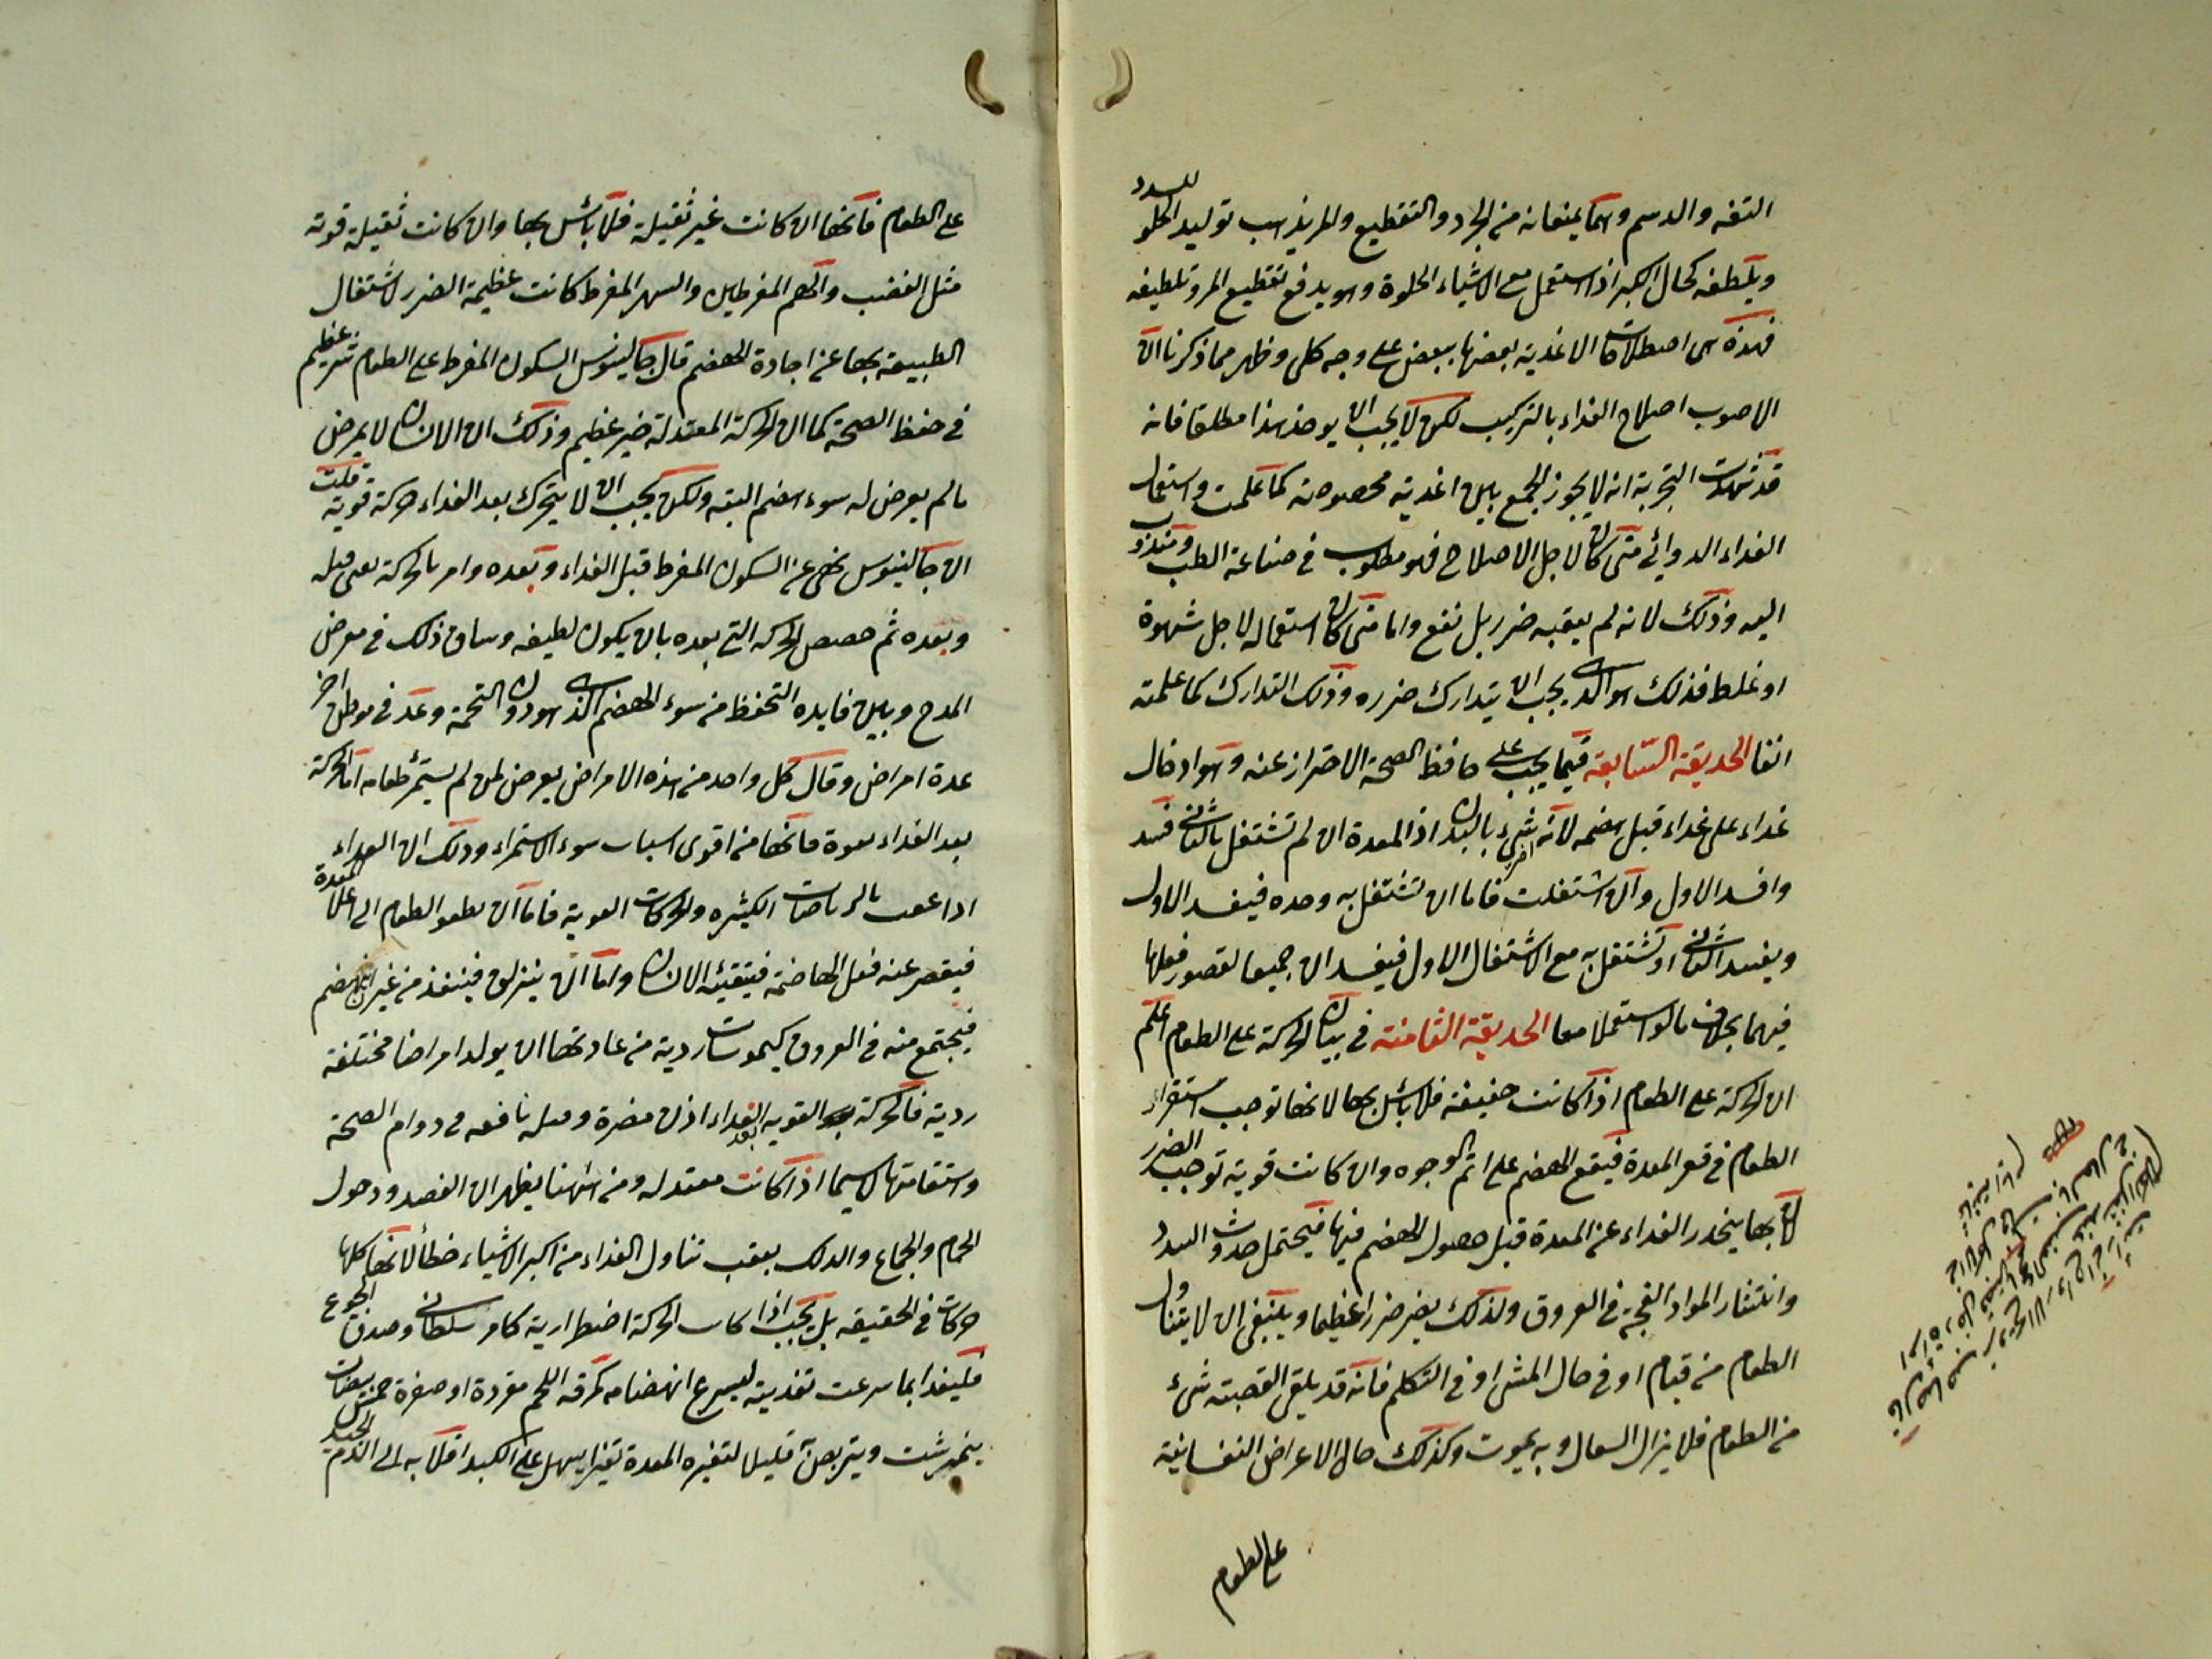 التفه والدسم وهما يمنعانه من الجرد والتقطيع والمر يذهب توليد الحلو للسدد
ويلطفه كحال الكبر اذا استعمل مع الاشياء الحلوة وهو يدفع تقطيع المر وتلطيفه
فهذه هى اصطلاحات الاغذية بعضها ببعض على وجه كلى وظهر مما ذكرنا ان
الاصوب اصلاح الغداء بالتركيب لكن لا يجب ان يوخذ هذا مطلقا فانه
قد شهدت التجربة انه لا يجوز الجمع بين اغذية مخصوصة كما علمت واستعمال
الغداء الدوائى متى كان لاجل الاصلاح فهو مطلوب فى صناعة الطب ومندوب
اليه وذلك لانه لم يعقبه ضرر بل نفع واما متى كان استعماله لاجل شهوة
او غلط فذلك هو الذى يجب ان يتدارك ضرره وذلك التدارك كما علمته
انفا الحديقة السابعة فيما يجب على حافظ الصحة الاحتراز عنه وهو ادخال
غداء على غداء قبل هضمه لانه شىء اضر بالبدن اذ المعدة ان لم تشتغل بالثانى فسد
وافسد الاول وان اشتغلت فاما ان تشتغل به وحده فيفسد الاول
ويفسد الثانى او تشتغل به مع اشتغال الاول فيفسد ان جميعا لقصور فعلها
فيهما بخلاف ما لو استعملا معا الحديقة الثامنة فى بيان الحركة على الطعام اعلم
ان الحركة على الطعام اذا كانت خفيفة فلا باس بها لانها توجب استقرار
الطعام فى قعر المعدة فيقع الهضم على اتم الوجوه وان كانت قوية توجب الضرر
لان بها ينحدر الغداء عن المعدة قبل حصول الهضم فيها فيحتمل حدوث السدد
وانتشار المواد الفجة فى العروق ولذلك يضر ضررا عظيما وينبغى ان لا يتناول
الطعام من قيام او فى حال المشى او فى التكلم فانه قد يلقى القصبة شىء
من الطعام فلا يزال السعال وبه يموت وكذلك حال الاعراض النفسانية
على الطعام
على الطعام فانها ان كانت غير ثقيلة فلا باس بها وان كانت ثقيلة قوية
مثل الغضب والهم المفرطين والسهر المفرط كانت عظيمة الضرر لاشتغال
الطبيعة بها عن اجادة الهضم قال جالينوس السكون المفرط على الطعام شر عظيم
فى حفظ الصحة كما ان الحركة المعتدلة خير عظيم وذلك ان الانسان لا يمرض
ما لم يعرض له سوء هضم البتة ولكن يجب ان لا يتحرك بعد الغداء حركة قوية قلت
ان جالينوس نهى عن السكون المفرط قبل الغداء وبعده وامر بالحركة يعنى قبله
وبعده ثم خصص الحركة التى بعده بان يكون لطيفه وساق ذلك فى معرض
المدح وبين فايده التحفظ من سوء الهضم الذى هو دون التخمة وعد فى موطن اخر
عدة امراض وقال كل واحد من هذه الامراض يعرض لمن لم يستمرئ طعامه اما الحركة
بعد الغداء بقوة فانها من اقوى اسباب سوء الاستمراء وذلك ان الغداء
اذا عقب بالرياضات الكثيره والحركات القوية فاما ان يطفو الطعام الى اعلى المعدة
فيقصر عنه فعل الهاضمة فيتقيئه الانسان واما ان ينزلق فينفذ من غير ان ينهضم
فيجتمع منه فى العروق كيموسات ردية من عادتها ان يولد امراضا مختلفة
ردية فالحركة القويه بعد الغداء اذن مضرة وقبله نافعه فى دوام الصحة
واستقامتها لا سيما اذا كانت معتدله ومن هاهنا يظهر ان الفصد ودخول
الحمام والجماع والدلك بعقب تناول الغداء من اكبر الاشياء خطأ لانها كلها
حركات فى الحقيقه بل يجب اذا كانت الحركة اضطرارية كامر سلطانى وصدق الجوع
فليغد ابما سرعت تغذيته ليسرع انهضامه كمرقه اللحم مفردة او صفرة خمس بيضات
نيمرشت ويتربص قليلا لتغيره المعدة تغيرا يسهل على الكبد اقلابه الى الدم الجيد